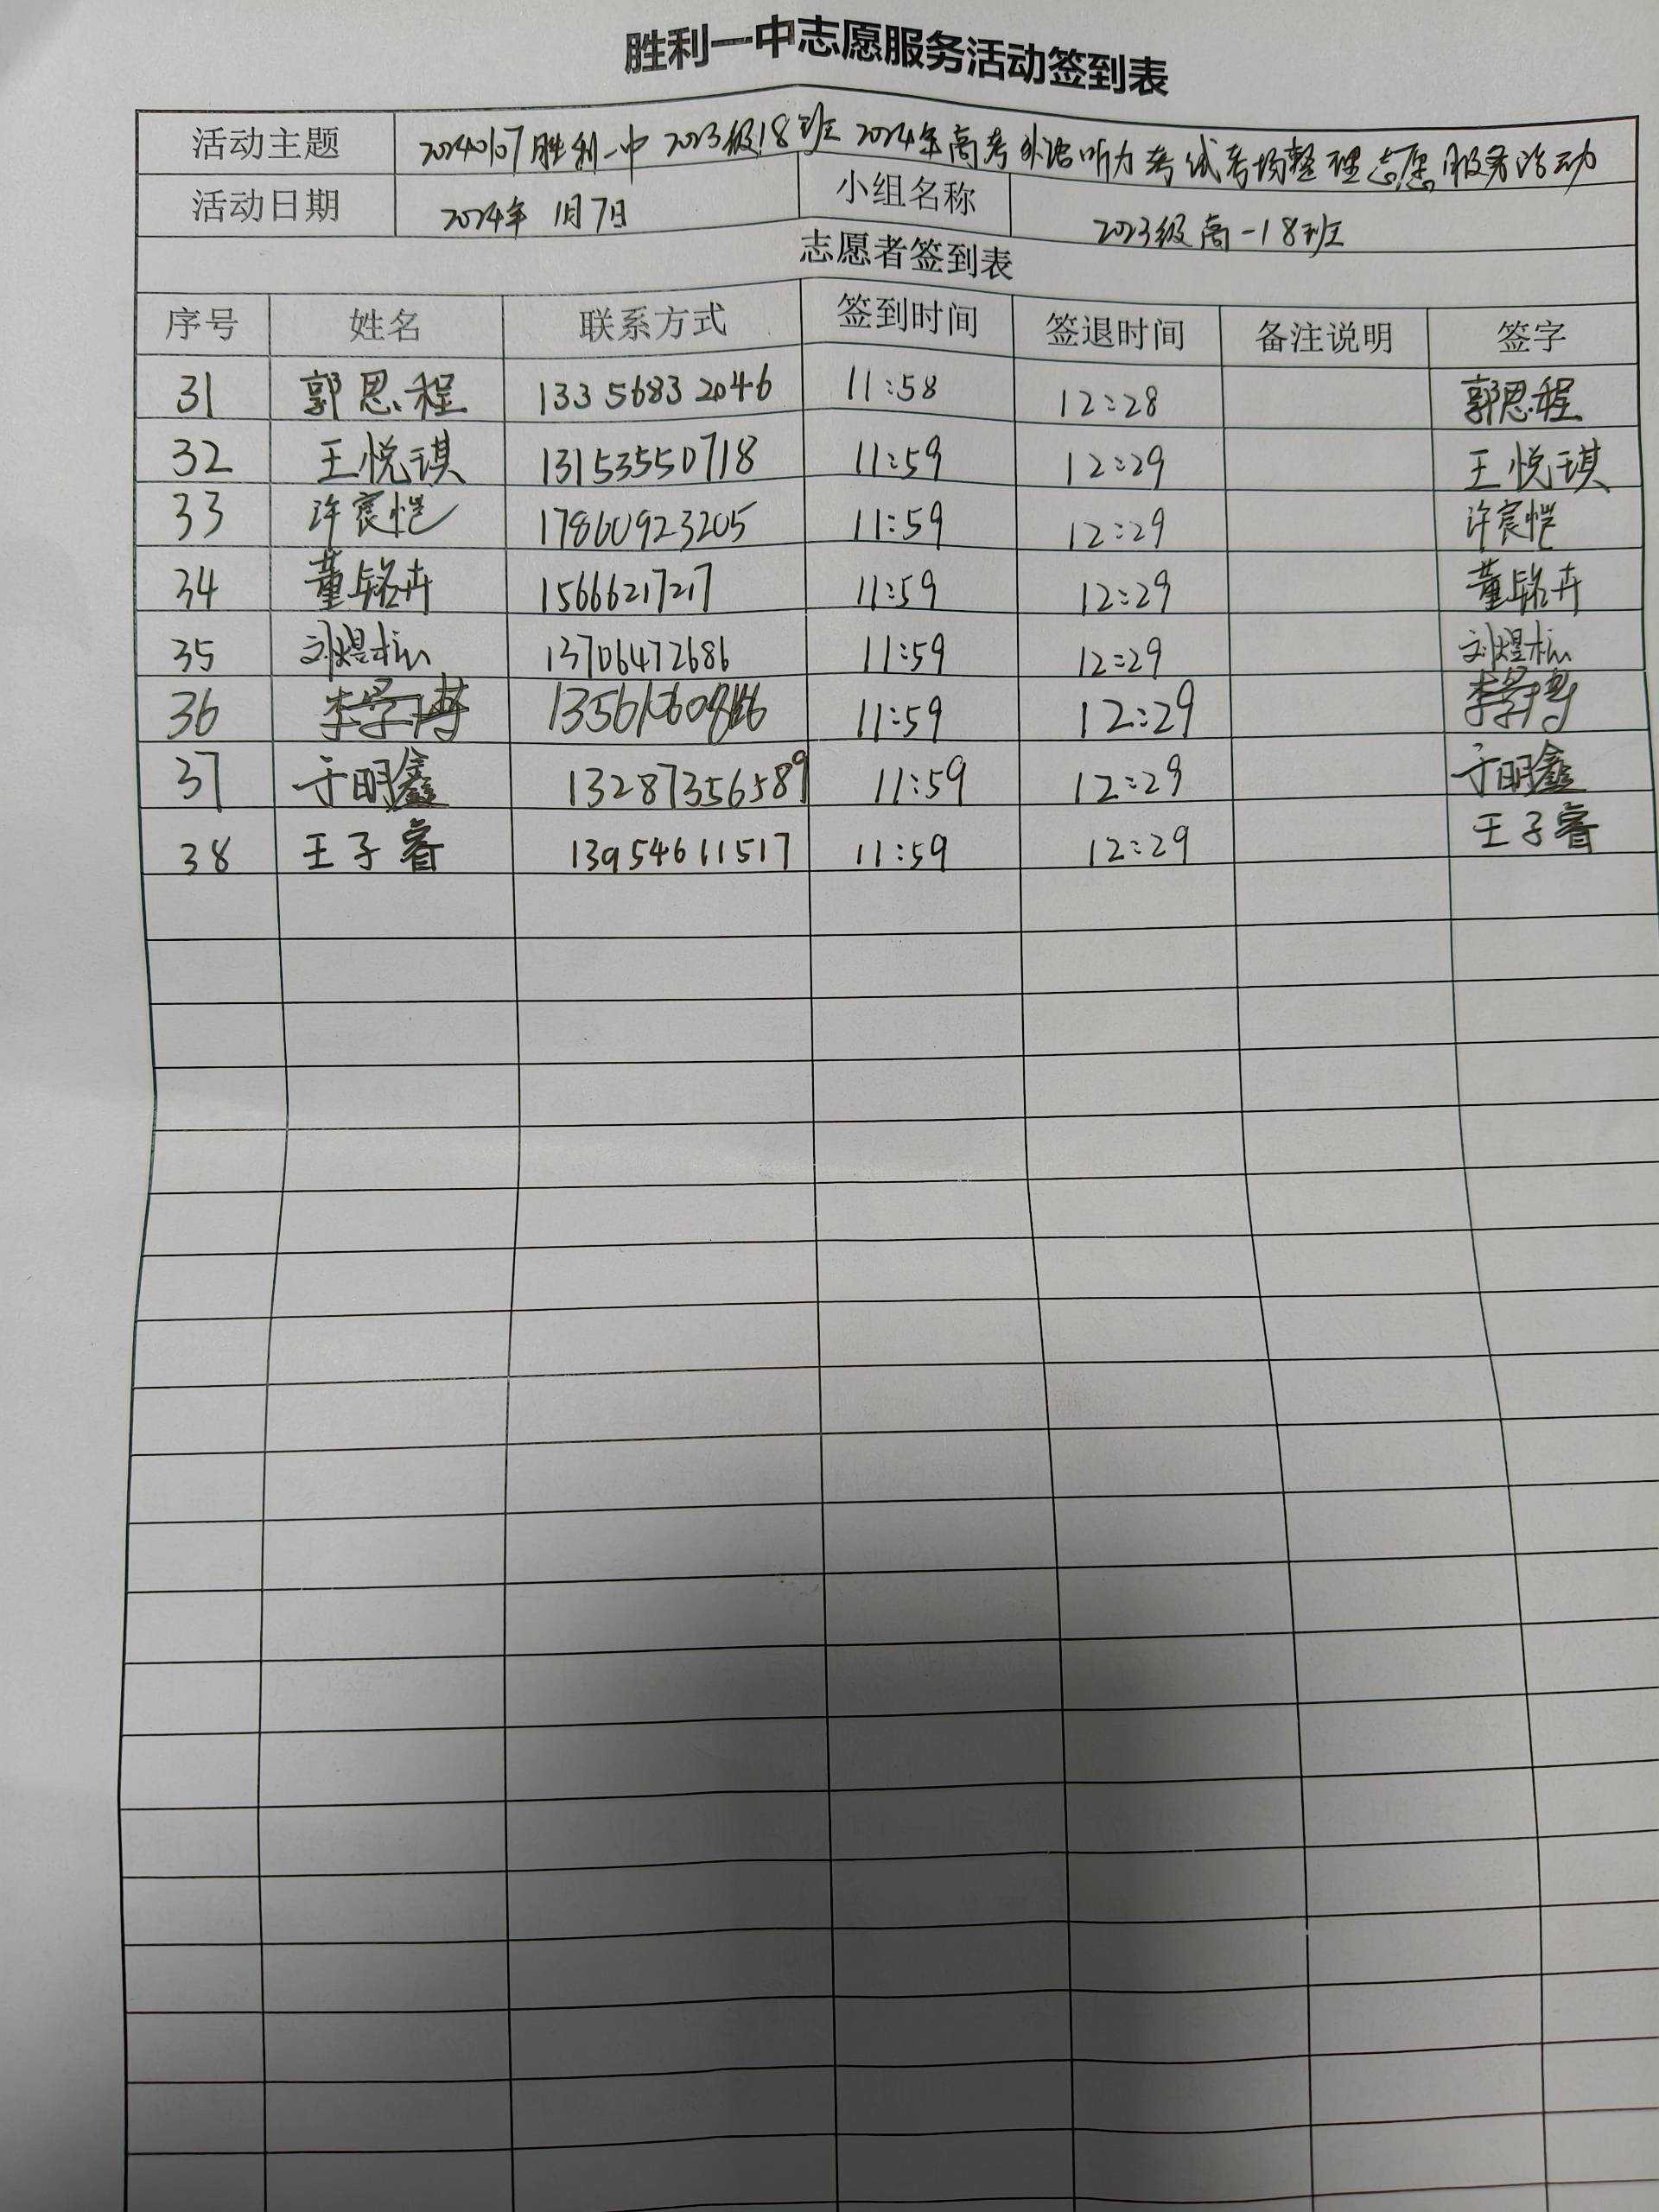 胜利一中志愿服务活动签到表
活动主题 20240107胜利一中2023级18班2024年高考外语听力考试考场整理志愿服务活动
活动日期 2024年1月7日 小组名称 2023级高一18班
志愿者签到表
序号 姓名 联系方式 签到时间 签退时间 备注说明 签字
31 郭思程 13356832046 11:58 12:28 郭思程
32 王悦琪 13153550718 11:59 12:29 王悦琪
33 许宸恺 17860923205 11:59 12:29 许宸恺
34 董铭卉 15666217217 11:59 12:29 董铭卉
35 刘煜标 13706472686 11:59 12:29 刘煜标
36 李景博 11:59 12:29 李景博
37 于明鑫 13287356589 11:59 12:29 于明鑫
38 王子睿 13954611517 11:59 12:29 王子睿